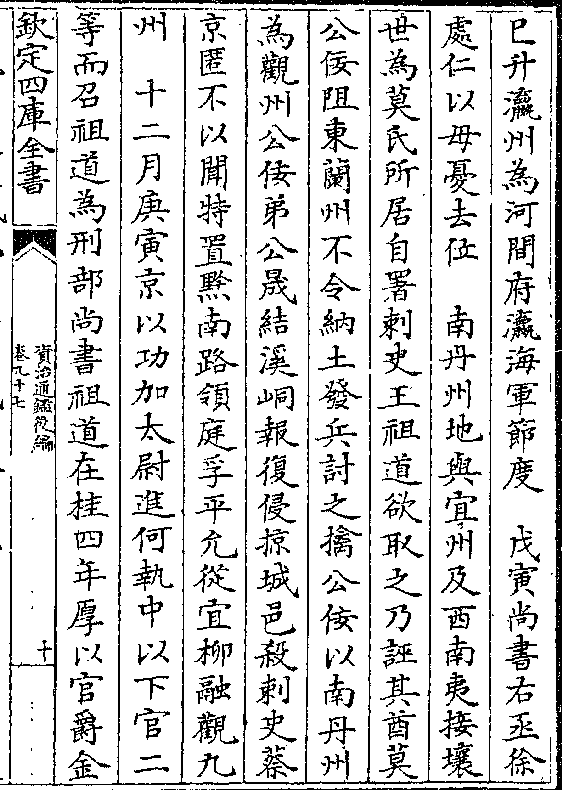 巳升瀛州為河間府瀛海軍節度　戊寅尚書右丞徐
處仁以母憂去位　南丹州地與宜州及西南夷接壤
世為莫氏所居自署刺史王祖道欲取之乃誣其酋莫
公佞阻東蘭州不令納土發兵討之擒公佞以南丹州
為觀州公佞弟公晟結溪峒報復侵掠城邑殺刺史蔡
京匿不以聞特置黔南路領庭孚平允從宜柳融觀九
州　十二月庚寅京以功加太尉進何執中以下官二
等而召祖道為刑部尚書祖道在桂四年厚以官爵金
欽定四庫全書
資治通鑑後編
卷九十七
十